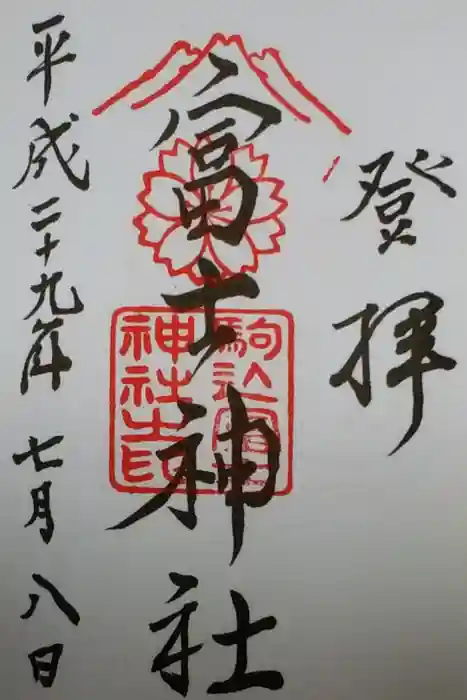 登拝
富士神社
駒込富士
神社之印
平成二十九年七月八日